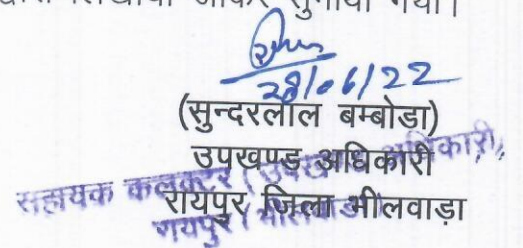 लिखाया जाकर सुनाया गया।
28/06/22
(सुन्दरलाल बम्बोडा)
उपखण्ड अधिकारी
रायपुर जिला भीलवाड़ा
सहायक कलक्टर (उपखण्ड अधिकारी)
रायपुर (भीलवाड़ा)